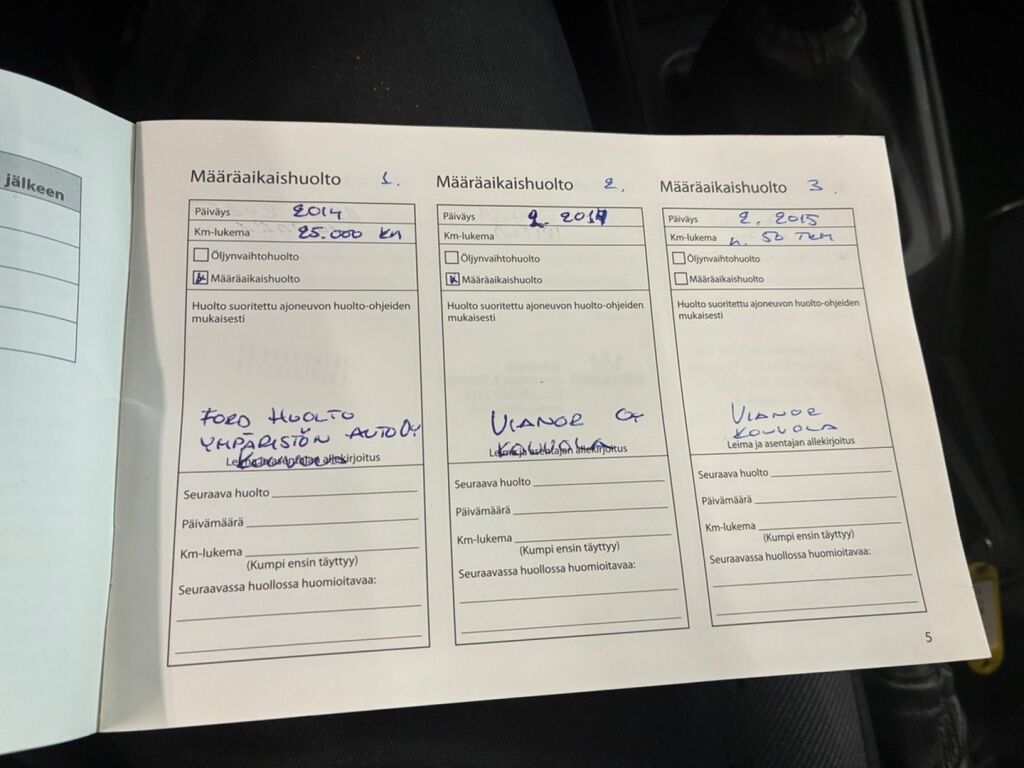 jälkeen
Määräaikaishuolto 1.
Päiväys 2014
Km-lukema 25.000 km
Öljynvaihtohuolto
Määräaikaishuolto
Huolto suoritettu ajoneuvon huolto-ohjeiden
mukaisesti
FORD HUOLTO
YMPÄRISTÖN AUTO OY
Leima ja asentajan allekirjoitus
Seuraava huolto
Päivämäärä
Km-lukema
(Kumpi ensin täyttyy)
Seuraavassa huollossa huomioitavaa:
Määräaikaishuolto 2.
Päiväys 2. 2014
Km-lukema
Öljynvaihtohuolto
Määräaikaishuolto
Huolto suoritettu ajoneuvon huolto-ohjeiden
mukaisesti
VIANOR OY
KOUVOLA
Leima ja asentajan allekirjoitus
Seuraava huolto
Päivämäärä
Km-lukema
(Kumpi ensin täyttyy)
Seuraavassa huollossa huomioitavaa:
Määräaikaishuolto 3.
Päiväys 2. 2015
Km-lukema n. 50 TKM
Öljynvaihtohuolto
Määräaikaishuolto
Huolto suoritettu ajoneuvon huolto-ohjeiden
mukaisesti
VIANOR
KOUVOLA
Leima ja asentajan allekirjoitus
Seuraava huolto
Päivämäärä
Km-lukema
(Kumpi ensin täyttyy)
Seuraavassa huollossa huomioitavaa:
5